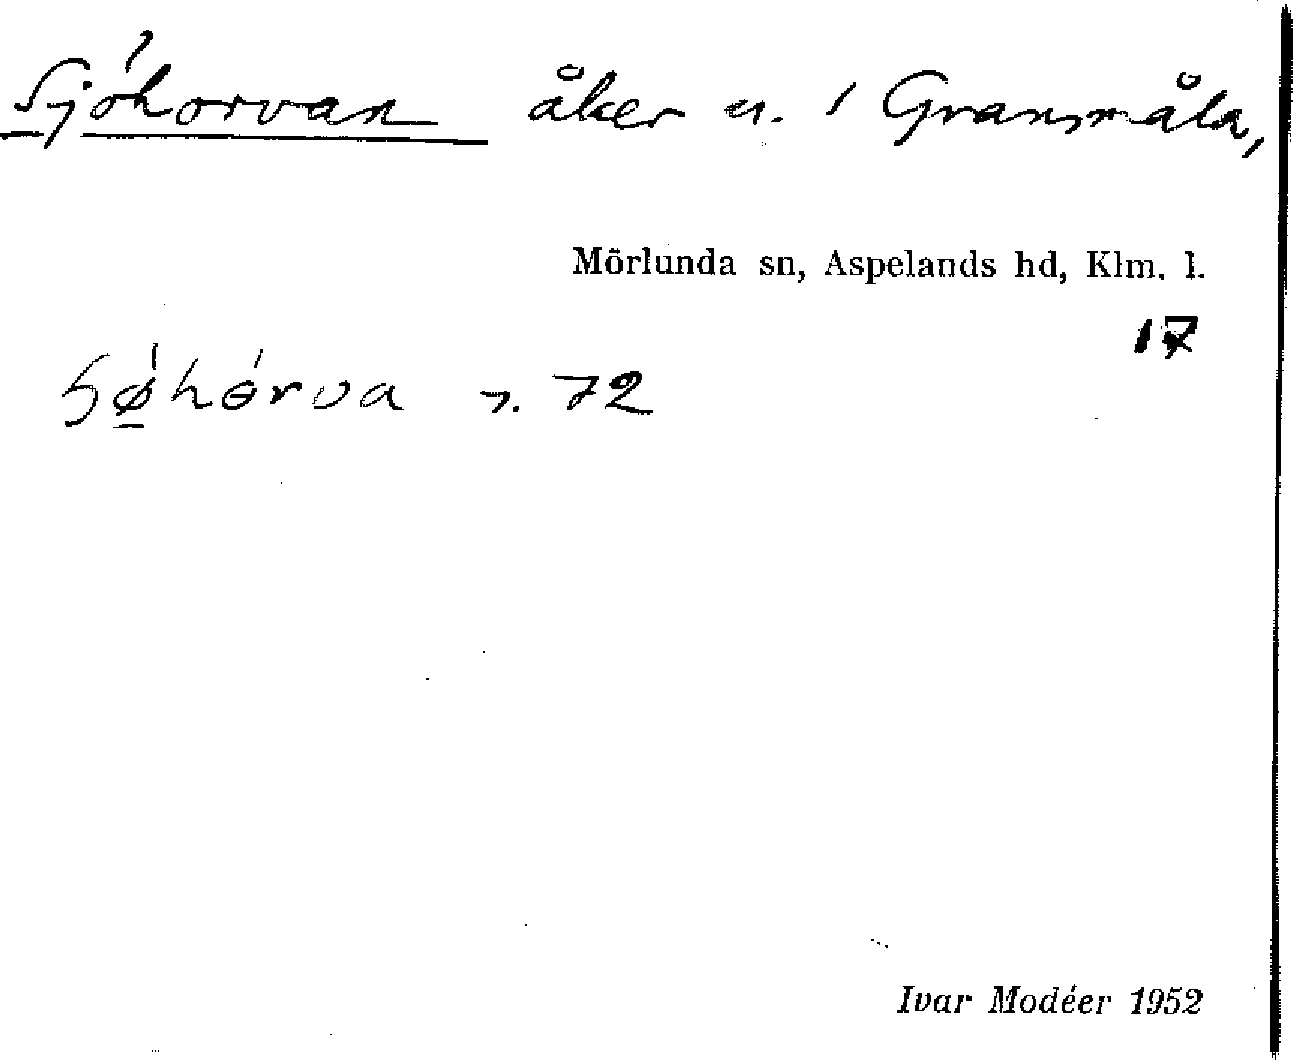 Sjöhorvan åker n. i Gransmåla,
Mörlunda sn, Aspelands hd, Klm. l.
17
72
Ivar Modéer 1952